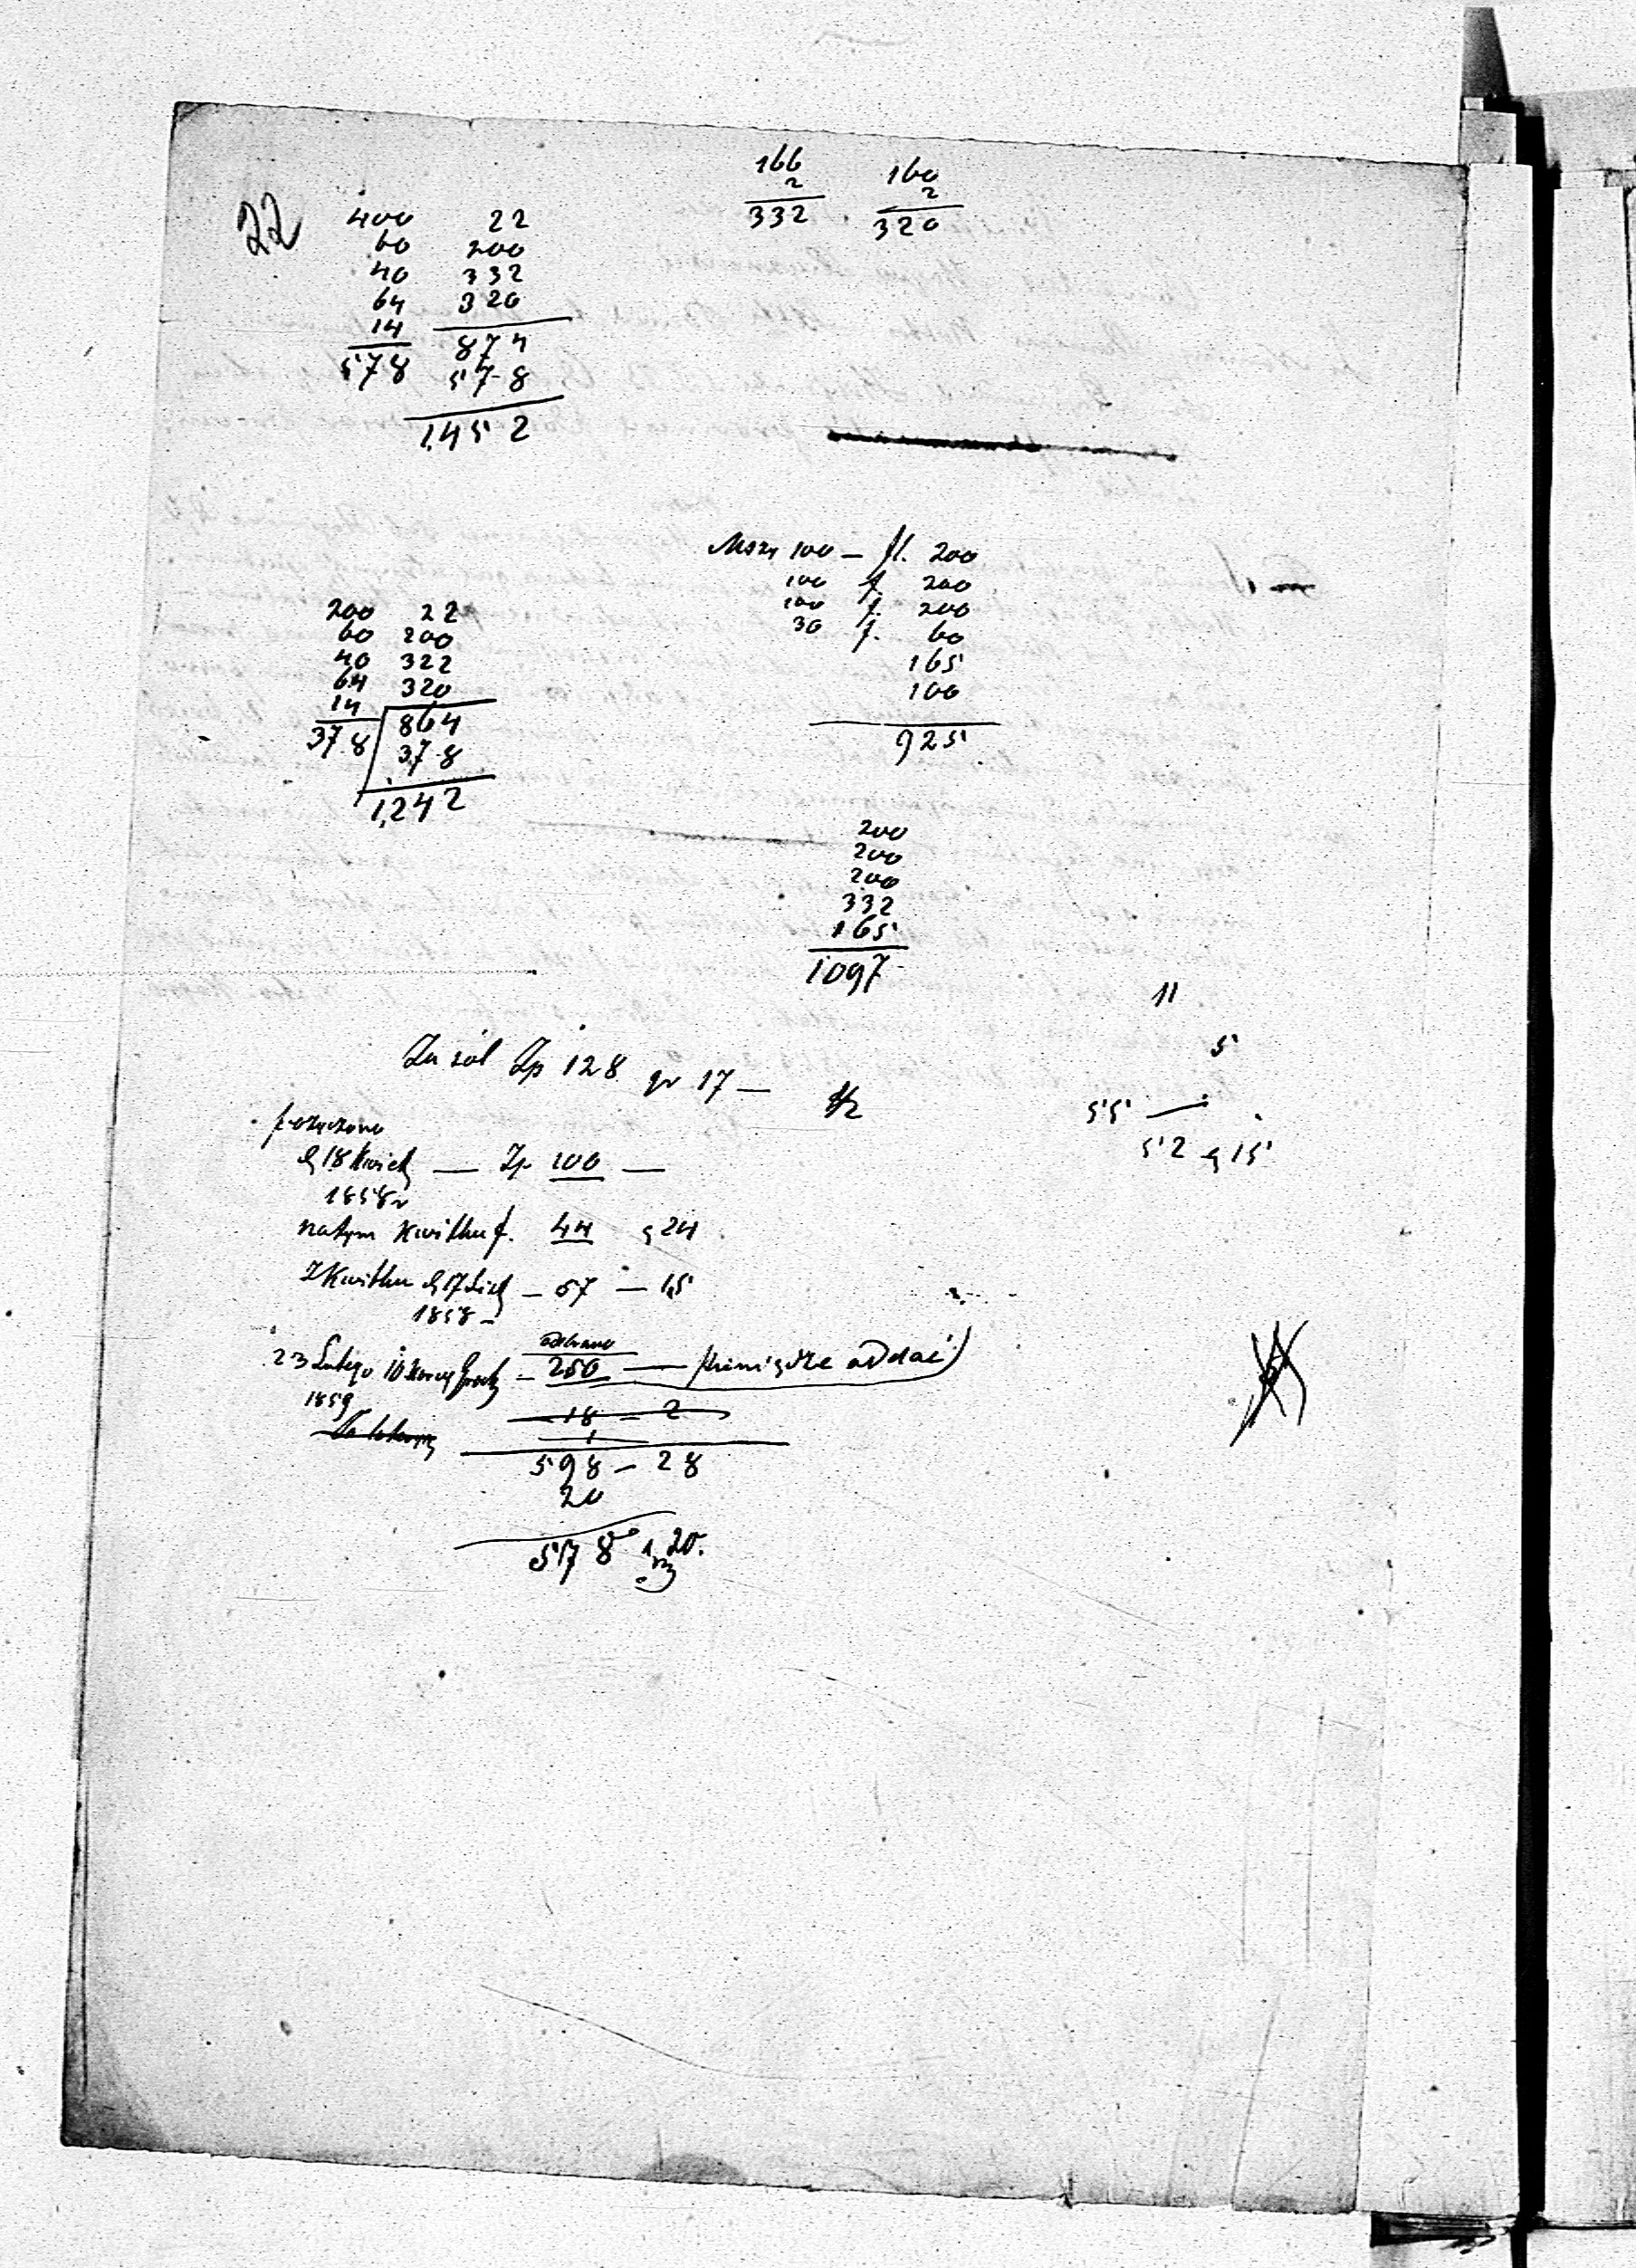 166 160
2 2
332 320
22
400 22
60 200
40 332
64 320
14
578 874
578
1,452
Mszy 100 — fl. 200
100 f. 200
100 f. 200
30 f. 60
165
100
925
200 22
60 200
40 322
64 320
14
378 864
378
1,242
200
200
200
332
165
1097
11
5
55 —
52 g 15
Za sól Zp 128 gr 17 —
pożyczono
d 18 Kwiet — Zp 100 —
1858 r
na tym Kwitku f. 44 g 24
Z Kwitku d 17 List — 57 — 15
1858 —
odebrano
23 Lutego 10 — 250 — (pieniądze oddać)
1859
18 — 2
1
598 — 28
20
578 20.